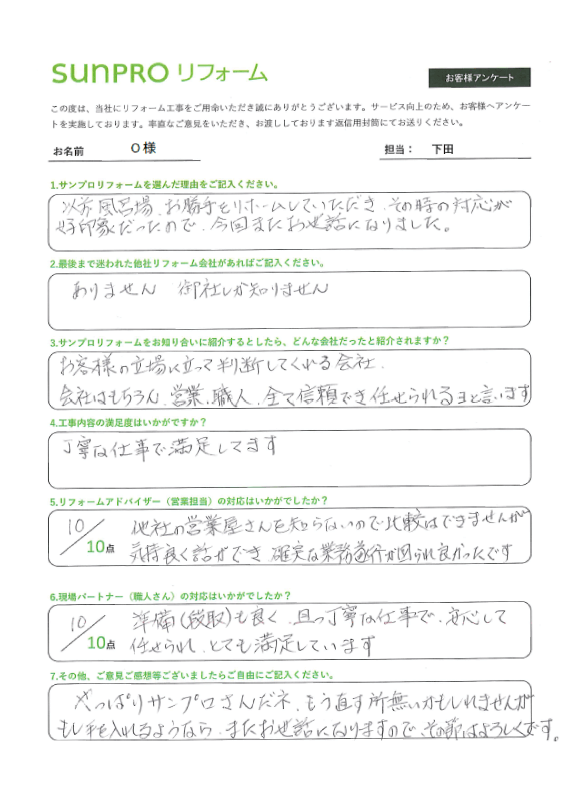 sunpro リフォーム
お客様アンケート
この度は、当社にリフォーム工事をご用命いただき誠にありがとうございます。サービス向上のため、お客様へアンケー
トを実施しております。率直なご意見をいただき、お渡ししております返信用封筒にてお送りください。
お名前 O様 担当: 下田
1.サンプロリフォームを選んだ理由をご記入ください。
以前風呂場、お勝手をリホームしていただき、その時の対応が
好印象だったので、今回またお世話になりました。
2.最後まで迷われた他社リフォーム会社があればご記入ください。
ありません 御社しか知りません
3.サンプロリフォームをお知り合いに紹介するとしたら、どんな会社だったと紹介されますか?
お客様の立場に立って判断してくれる会社.
会社はもちろん、営業、職人、全て信頼でき任せられるヨと言います
4.工事内容の満足度はいかがですか?
丁寧な仕事で満足してます
5.リフォームアドバイザー(営業担当)の対応はいかがでしたか?
10/10点 他社の営業屋さんを知らないので比較はできませんが
気持良く話ができ 確実な業務遂行が図られ良かったです
6.現場パートナー(職人さん)の対応はいかがでしたか?
10/10点 準備(段取)も良く、且つ丁寧な仕事で、安心して
任せられ、とても満足しています
7.その他、ご意見ご感想等ございましたらご自由にご記入ください。
やっぱりサンプロさんだネ、もう直す所無いかもしれませんが
もし手を入れるようなら、またお世話になりますので、その節はよろしくです。